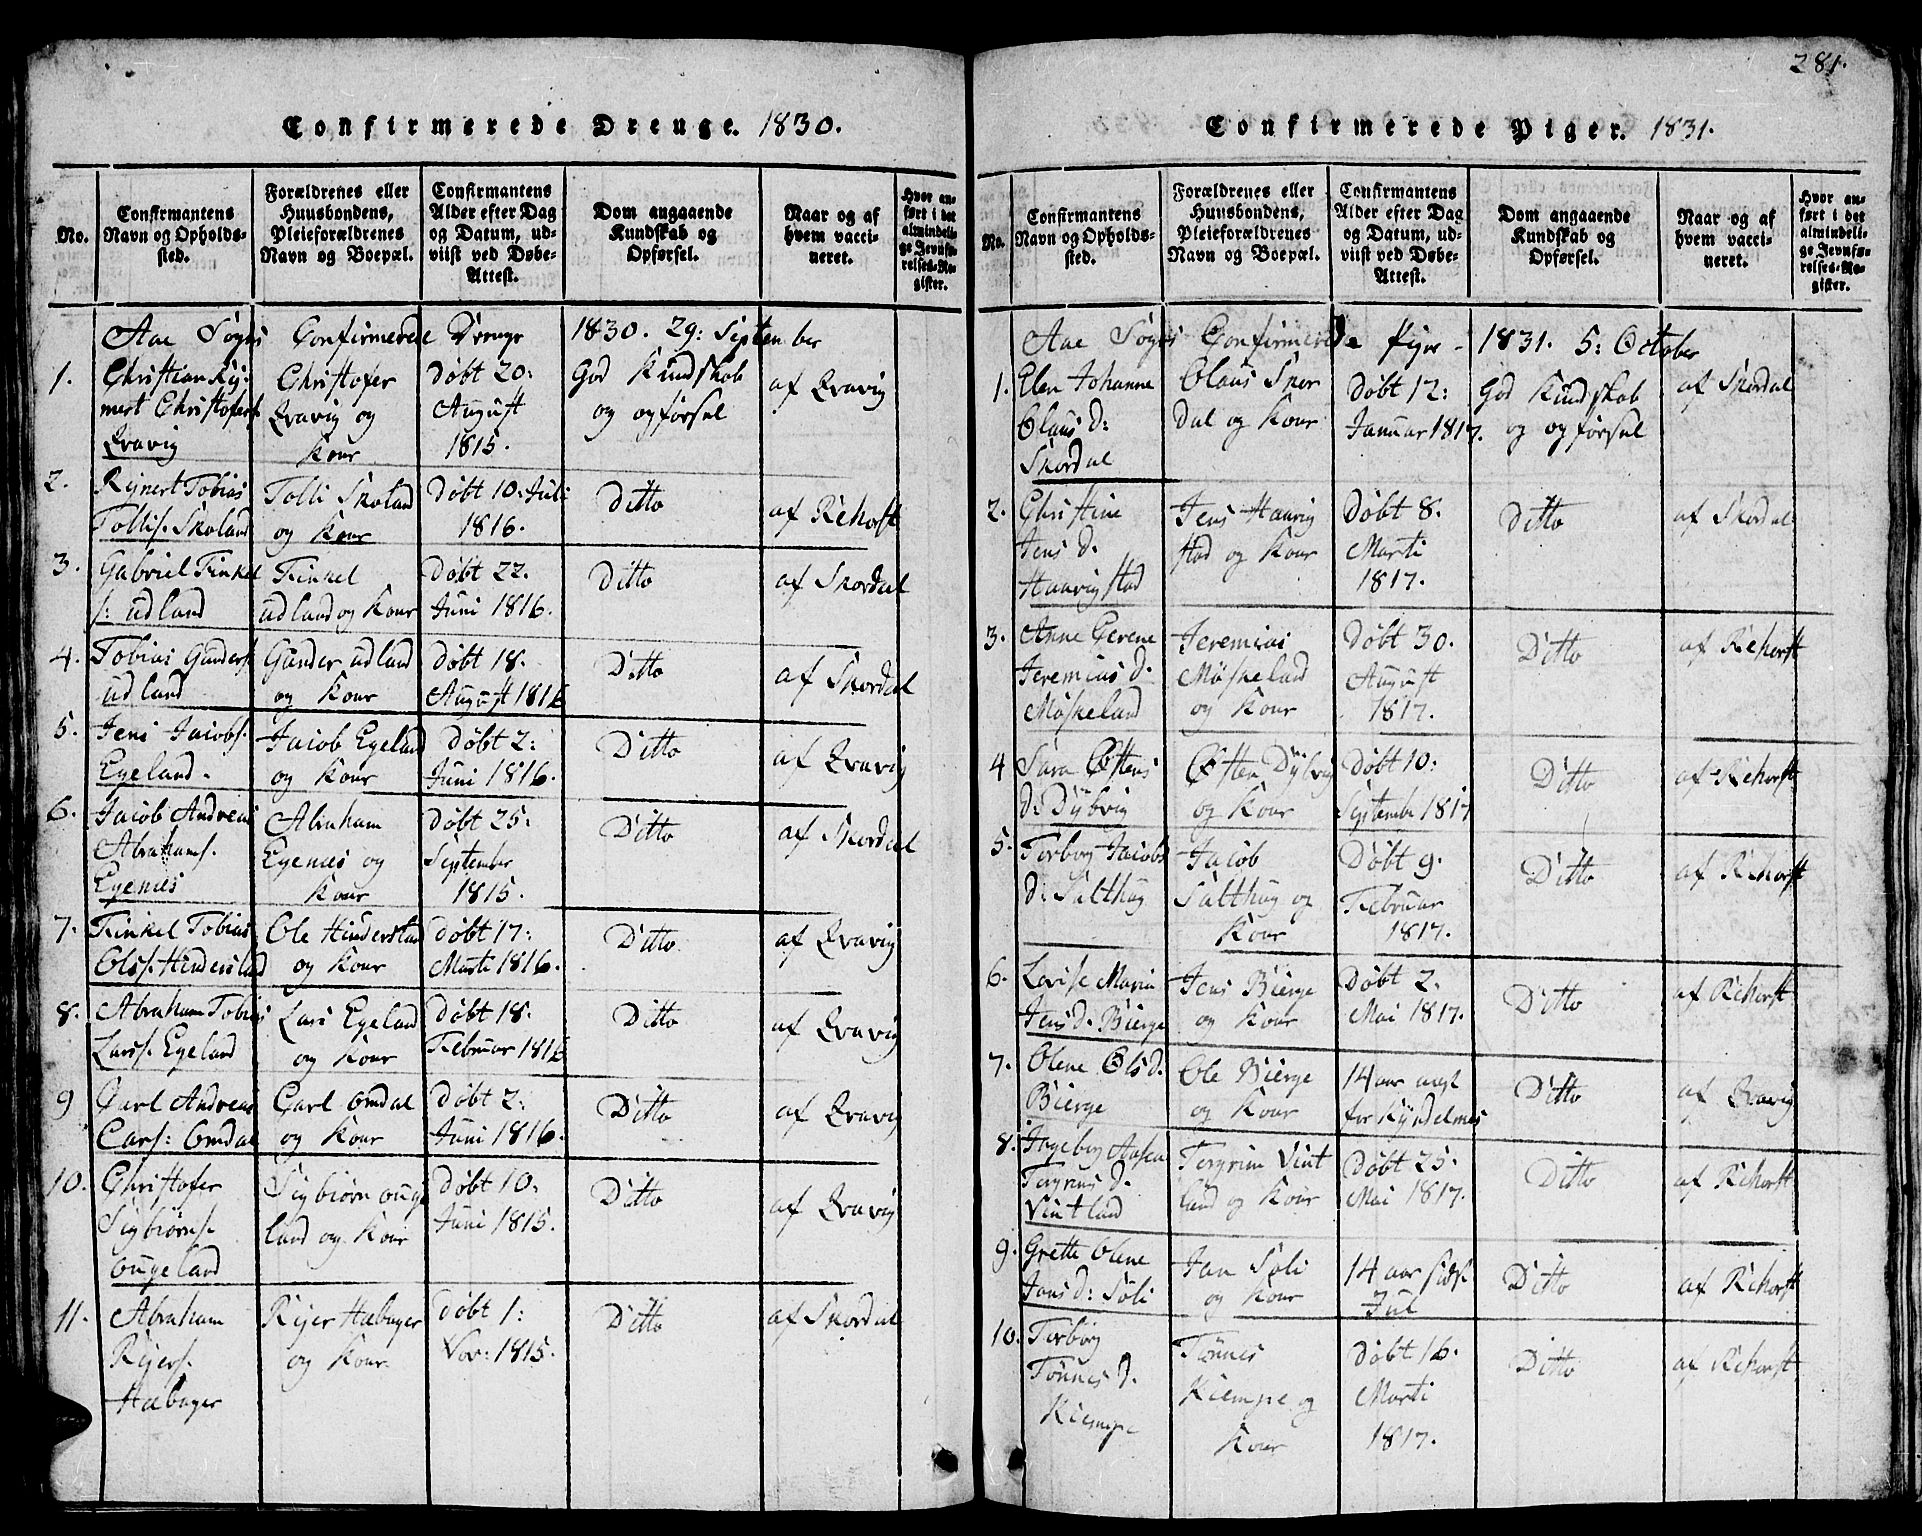 281.
Confirmerede Drenge. 1830.
No.
Confirmantens Navn og Opholds-sted.
Forældrenes eller Huusbondens, Pleieforældrenes Navn og Boepæl.
Confirmantens Alder efter Dag og Datum, ud-viist ved Døbe-Attest.
Dom angaaende Kundskab og Opførsel.
Naar og af hvem vacci-neret.
Hvor an-ført i det almindeli-ge Jevnfø-relses-Re-gister.
Aae Sogns Confirmerede Drenge 1830. 29: September
1. Christian Rej-
nert Christofers.
Qvavig
Christofer
Qvavig og
Kone
Døbt 20:
August
1815.
God Kundskab
og opførsel
af Qvavig
2. Rejnert Tobias
Tollis. Skoland
Tolli Skoland
og Kone
Døbt 10: Juli
1816.
Ditto
af Rehorst
3. Gabriel Tinkel
s: udland
Tinkel
udland og Kone
Døbt 22.
Juni 1816.
Ditto
af Skordal
4. Tobias Gunders.
udland
Gunder udland
og Kone
Døbt 18.
August 1816
Ditto
af Skordal
5. Jens Jacobs.
Egeland.
Jacob Egeland
og Kone
Døbt 2:
Juni 1816.
Ditto
af Qvavig
6. Jacob Andreas
Abrahams.
Egenæs
Abraham
Egenæs og
Kone
Døbt 25:
September
1815.
Ditto
af Skordal
7. Tinkel Tobias
Ols. Hindersland
Ole Hindersland
og Kone
Døbt 17:
Marti 1816.
Ditto
af Qvavig
8. Abraham Tobias
Lars. Egeland
Lars Egeland
og Kone
Døbt 18.
Februar 1816
Ditto
af Qvavig
9 Carl Andreas
Cars: Omdal
Carl Omdal
og Kone
Døbt 2:
Juni 1816.
Ditto
af Qvavig
10. Christofer
Sigbiørns.
Ougeland
Sigbiørn Ouge
land og Kone
Døbt 10:
Juni 1815.
Ditto
af Qvavig
11. Abraham
Rejers.
Hæbager
Rejer Hæbager
og Kone
Døbt 1:
Nov: 1815.
Ditto
af Skordal
Confirmerede Piger. 1831.
No.
Confirmantens Navn og Opholds-sted.
Forældrenes eller Huusbondens, Pleieforældrenes Navn og Boepæl.
Confirmantens Alder efter Dag og Datum, ud-viist ved Døbe-Attest.
Dom angaaende Kundskab og Opførsel.
Naar og af hvem vacci-neret.
Hvor an-ført i det almindeli-ge Jevnfø-relses-Re-gister.
Aae Sogns Confirmerede Piger - 1831. 5: October
1. Elen Johanne
Olaus D:
Skordal
Olaus Skor
dal og Kone
Døbt 12:
Januar 1817.
God Kundskab
og opførsel
af Skordal
2. Christine
Jens D.
Haavigstad
Jens Haavig
stad og Kone
Døbt 8.
Marti
1817.
Ditto
af Skordal
3. Anne Gerene
Jeremias D.
Møskeland
Jeremias
Møskeland
og Kone
Døbt 30.
August
1817.
Ditto
af Rehorst
4 Sara Østens
D: Dybvig
Østen Dybvig
og Kone
Døbt 10:
September 1817
Ditto
af Rehorst
5. Torborg Jacobs
D: Salthug
Jacob
Salthug og
Kone
Døbt 9.
Februar
1817.
Ditto
af Rehorst
6. Lovise Marie
Jens D. Bierge
Jens Bierge
og Kone
Døbt 2.
Mai 1817.
Ditto
af Rehorst
7. Olene Ols D.
Bierge
Ole Bierge
og Kone
14 aar
for Kyndelmes
Ditto
af Qvavig
8. Ingeborg Aasea
Tergrims D.
Vintland
Tergrim Vint
land og Kone
Døbt 25.
Mai 1817.
Ditto
af Rehorst
9. Grette Olene
Jans D: Soli
Jan Soli
og Kone
14 aar sidst
Jul
Ditto
af Rehorst
10. Torborg
Tønnes D.
Kiempe
Tønnes
Kiempe og
Kone
Døbt 16.
Marti
1817.
Ditto
af Rehorst